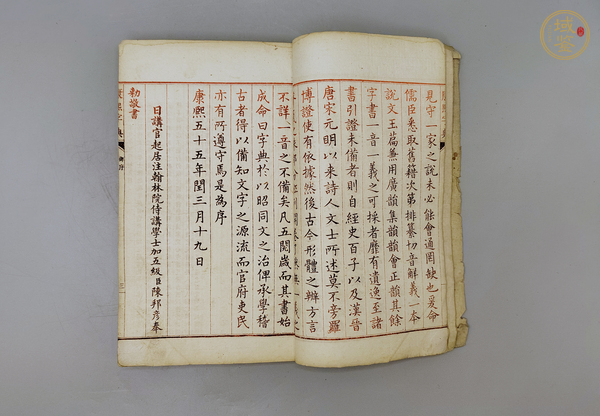 見守一家之說未必能會通罔缺也爰命
儒臣悉取舊籍次第排纂切音解義一本
說文玉篇兼用廣韻集韻韻會正韻其餘
字書一音一義之可採者靡有遺逸至諸
書引證未備者則自經史百子以及漢晉
唐宋元明以來詩人文士所述莫不旁羅
博證使有依據然後古今形體之辯方言
班列開卷了然無一義之
不詳一音之不備矣凡五閱歲而其書始
成命曰字典於以昭同文之治俾承學稽
古者得以備知文字之源流而官府吏民
亦有所遵守焉是為序
康熙五十五年閏三月十九日
日講官起居注翰林院侍講學士加五級臣陳邦彥奉
勅敬書
康熙字典
御序
三